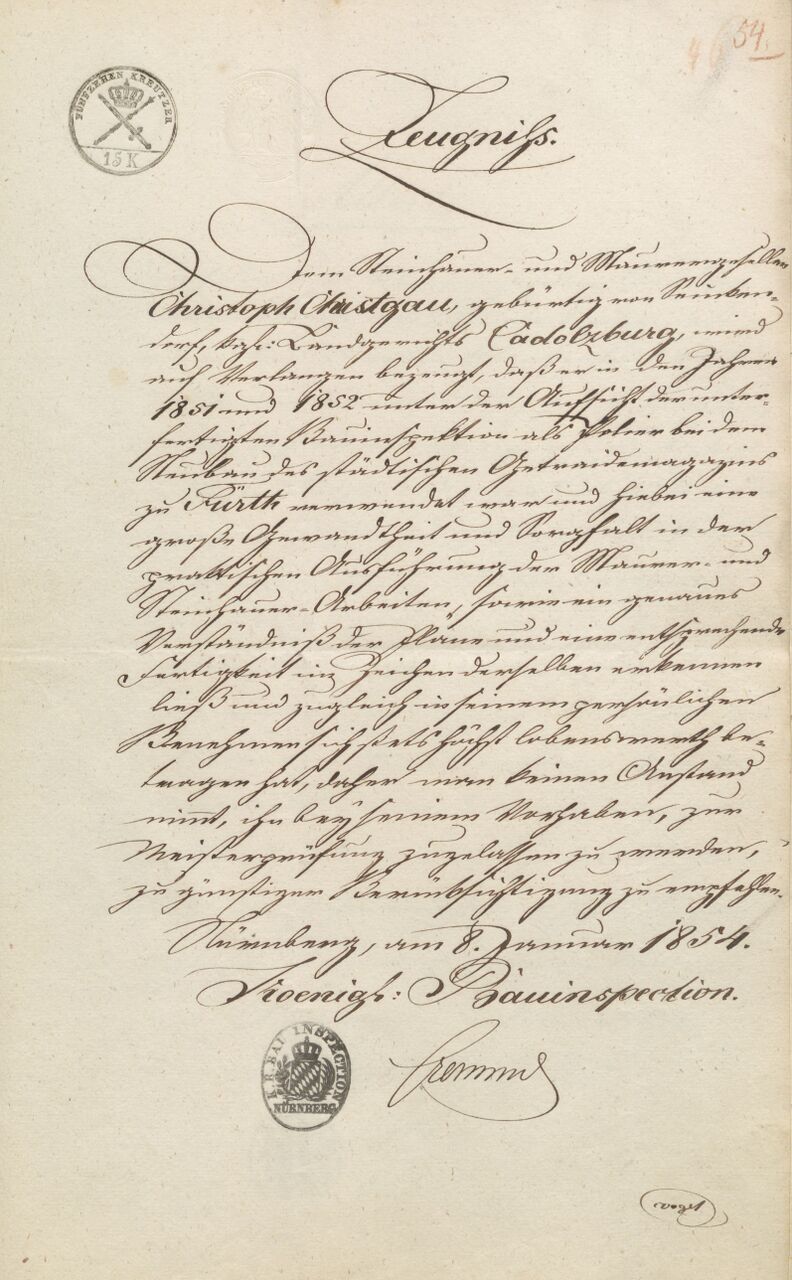 54.
FÜNFZEHEN KREUTZER
15 K
Zeugniss.
Dem Steinhauer- und Maurergesellen
Christoph Christgau, gebürtig von Seuken-
dorf, kgl: Landgerichts Cadolzburg, wird
auf Verlangen bezeugt, daß er in den Jahren
1851 und 1852 unter der Aufsicht der unter-
fertigten Bauinspektion als Polier bei dem
Neubau des städtischen Getraidemagazins
zu Fürth verwendet war und hiebei eine
große Gewandtheit und Sorgfalt in der
praktischen Ausführung der Maurer- und
Steinhauer-Arbeiten, sowie ein genaues
Verständniß der Pläne und eine entsprechende
Fertigkeit im Zeichen derselben erkennen
ließ und zugleich in seinem persönlichen
Benehmen sich stets höchst lobenswerth be-
tragen hat, daher man keinen Anstand
nimmt, ihn bey seinem Vorhaben, zur
Meisterprüfung zugelassen zu werden,
zu günstiger Berücksichtigung zu empfehlen.
Nürnberg, am 8. Januar 1854.
Koenigl: Bauinspection.
K. B. BAU INSPECTION
NÜRNBERG